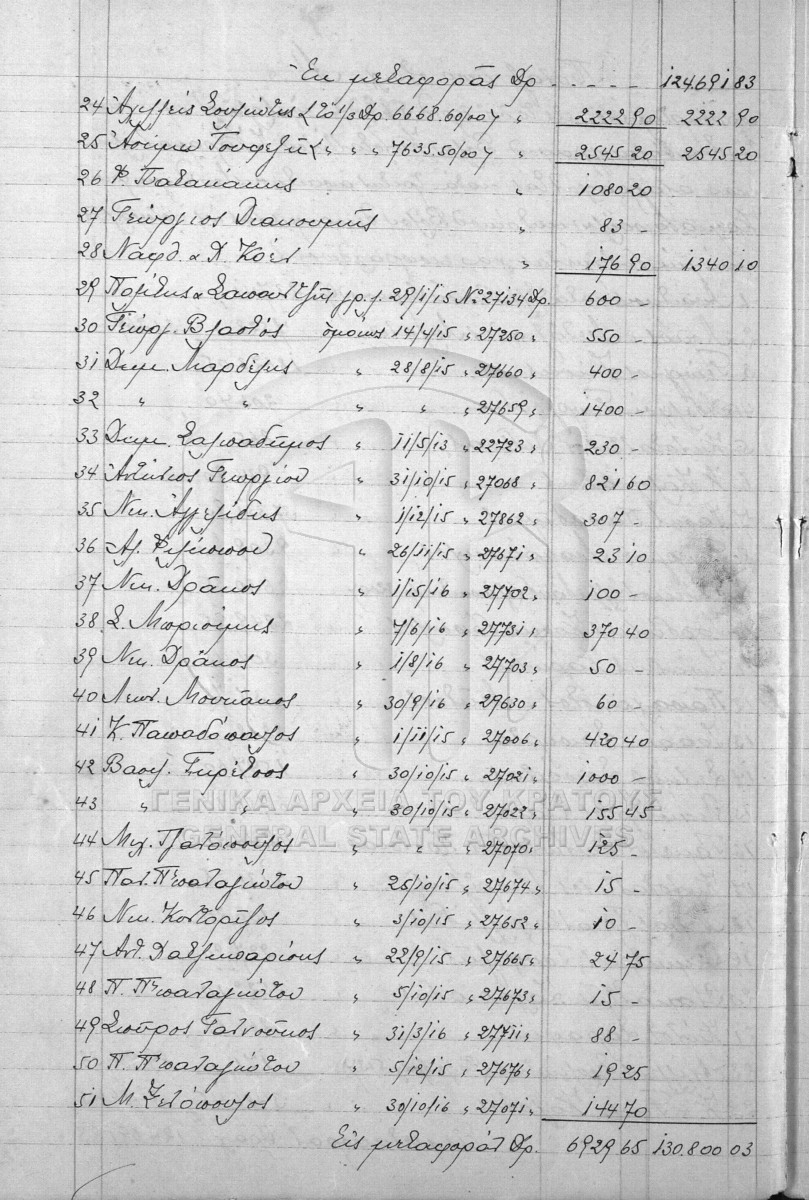 Ἐκ μεταφορᾶς Δρ. - - - - - 124.691 83
24 Ἀχιλλεὺς Σουλιώτης τὸ 1/3 Δρ. 6668.60/00 " 2222 90 2222 90
25 " " 7635.50/00 " 2545 20 2545 20
26 " 1080 20
27 Γεώργιος Διακουμῆς " 83 -
28 Ναφθ. & Χ. Κόεν " 176 90 1340 10
29 Πολίτης & Σαπουντζῆς γρ. 29/1/15 No 27134 Δρ. 600 -
30 Γεώργ. Βλαστός ὁμοίως 14/4/15 " 27250 " 550 -
31 Δημ. Μαρδέλης " 28/8/15 " 27660 " 400 -
32 " " " " " 27659 " 1400 -
33 Δημ. " 11/5/13 " 22723 " 230 -
34 Ἀντώνιος Γεωργίου " 31/10/15 " 27068 " 821 60
35 Νικ. Ἀγγελίδης " 1/12/15 " 27862 " 307 -
36 Ἀλ. Φιλίππου " 26/11/15 " 27671 " 23 10
37 Νικ. Δρᾶκος " 1/15/16 " 27702 " 100 -
38 Σ. " 7/6/16 " 27731 " 370 40
39 Νικ. Δρᾶκος " 1/8/16 " 27703 " 50 -
40 " 30/9/16 " 29630 " 60 -
41 Κ. Παπαδόπουλος " 1/11/15 " 27006 " 420 40
42 Βασιλ. " 30/10/15 " 27021 " 1000 -
43 " " " 30/10/15 " 27022 " 155 45
44 Μιχ. " " " 27070 " 125 -
45 Παν. Π'παναγιώτου " 25/10/15 " 27674 " 15 -
46 Νικ. " 3/10/15 " 27652 " 10 -
47 Ἀντ. " 22/9/15 " 27665 " 24 75
48 Π. Π'παναγιώτου " 5/10/15 " 27673 " 15 -
49 Σπύρος " 31/3/16 " 27711 " 88 -
50 Π. Π'παναγιώτου " 5/12/15 " 27676 " 19 25
51 Μ. " 30/10/16 " 27071 " 144 70
Εἰς μεταφορὰν Δρ. 6929 65 130.800 03
ΓΕΝΙΚΑ ΑΡΧΕΙΑ ΤΟΥ ΚΡΑΤΟΥΣ
GENERAL STATE ARCHIVES